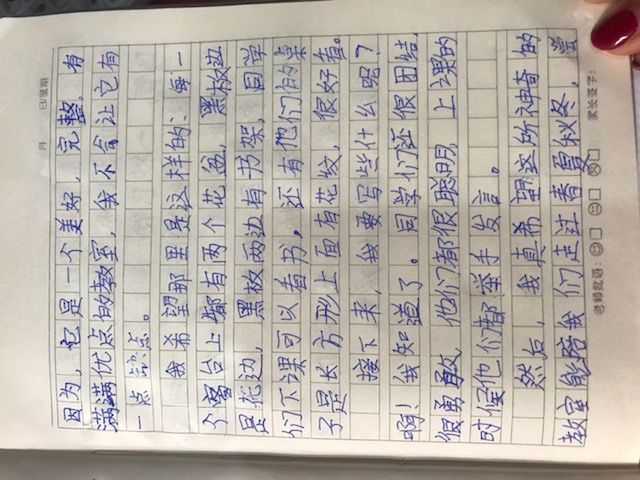 月 日/星期
因为，它是一个美好，完整，有
满满优点的教室，我不会让它有
一点缺点。
我希望那里是这样的：每一
个窗台上都有两个花盆，黑板边
是花边，黑板两边有书架，同学
们下课可以看书。还有他们的桌
子是长方形上面有花纹，很好看。
接下来，我要写些什么呢？
啊！我知道了。同学们还很团结，
很勇敢，他们都很聪明，上课的
时候他们都举手发言。
然后，我真希望这所神奇的
教室能陪我们走过春夏秋冬，
老师批语：
家长签字：